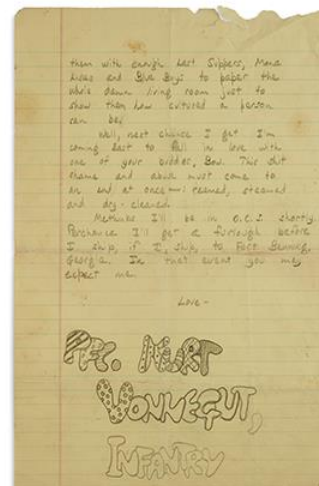 them with enough Last Suppers, Mona
Lisas and Blue Boys to paper the
whole damn living room just to
show them how cultured a person
can be!
Well, next chance I get I'm
coming East to fall in love with
one of your buddies, Bow. This
and must come to
an end at once — reamed, steamed
and dry-cleaned.
Methinks I'll be in O.C.S. shortly.
Perchance I'll get a furlough before
I ship, if I ship, to Fort Benning,
Georgia. In that event you may
expect me.
Love —
PFC. KURT
VONNEGUT,
INFANTRY